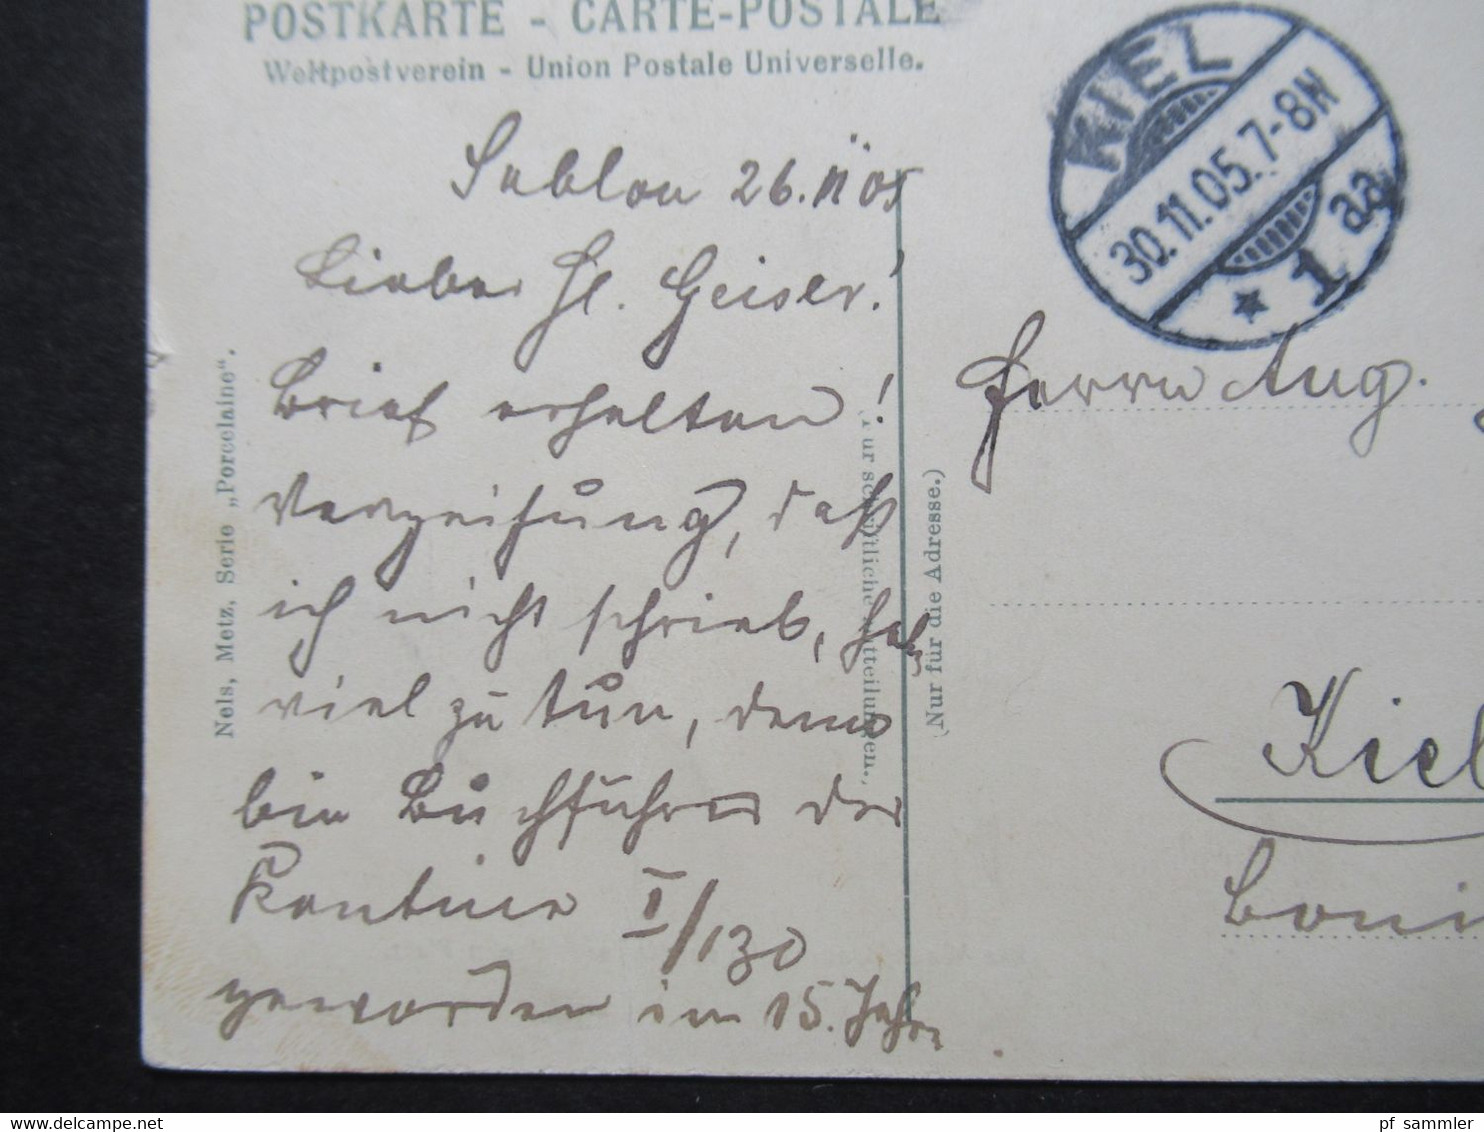 POSTKARTE - CARTE-POSTALE
Weltpostverein - Union Postale Universelle.
KIEL
30.11.05.7-8N
* 1 aa
Sablon 26. 11 05
Lieber Hl. Geiser!
Brief erhalten!
Verzeihung, daß
ich nicht schrieb, hab
viel zu tun, denn
bin Buchführer der
Kantine I/130
geworden im 15. Jahre
Nels, Metz, Serie „Porcelaine“.
(Für schriftliche Mitteilungen.)
(Nur für die Adresse.)
Herrn Aug.
Kiel